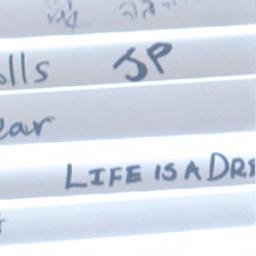 olls JP
ear
LIFE IS A DR